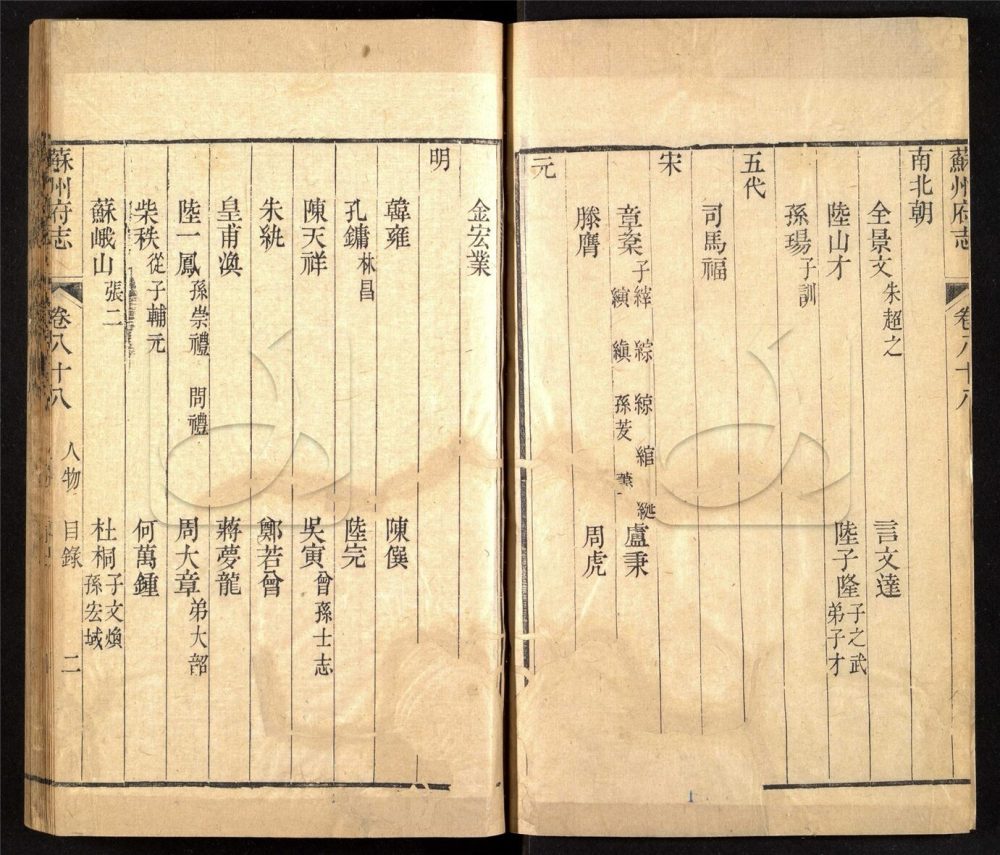 蘇州府志 卷八十八
南北朝
全景文 朱超之 言文達
陸山才 陸子隆 子之武 弟子才
孫瑒 子訓
五代
司馬福
宋
章楶 子縡 綜 綡 綰 綖 縯 縝 孫茇 盧秉
滕膺 周虎
元
金宏業
明
韓雍 陳僎
孔鏞 林昌 陸完
陳天祥 吳寅 曾孫士志
朱紈 鄭若曾
皇甫渙 蔣夢龍
陸一鳳 孫崇禮 問禮 周大章 弟大韶
柴秩 從子輔元 何萬鍾
蘇峨山 張二 杜桐 子文煥 孫宏域
蘇州府志 卷八十八 人物 目錄 二